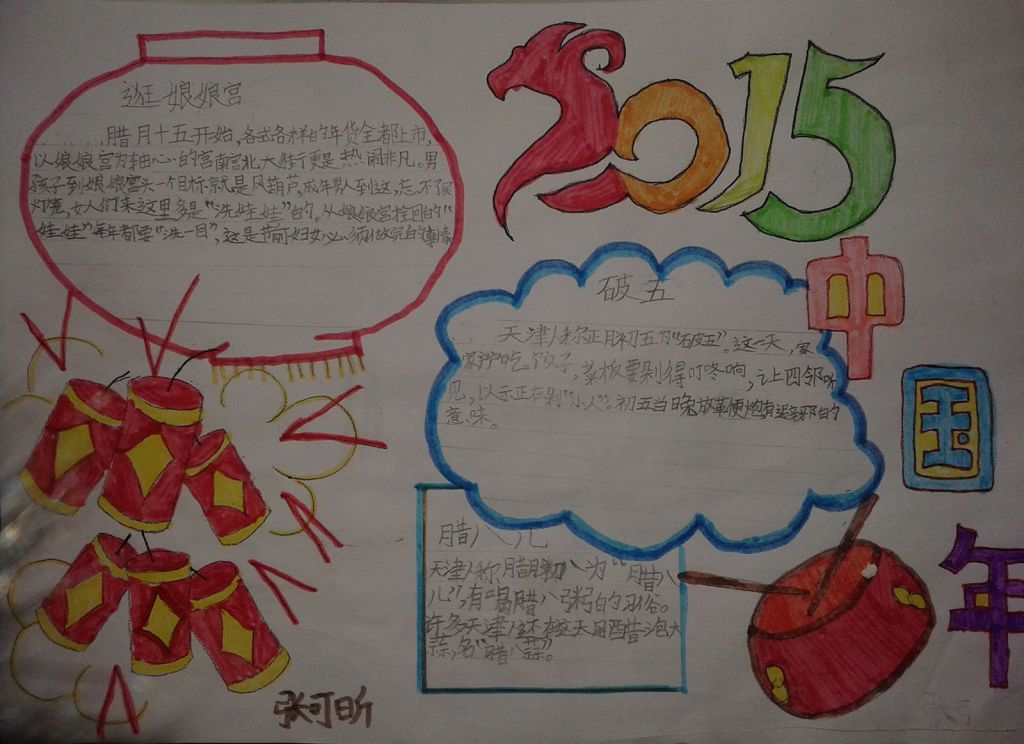 逛娘娘宫
腊月十五开始,各式各样的年货全都上市,
以娘娘宫为轴心的宫南宫北大街更是热闹非凡。男
孩子到娘娘宫头一个目标就是风葫芦。成年男人到这,忘不了买
灯笼,女人们来这里多是“洗娃娃”的。从娘娘宫拴回的“
娃娃”每年都要“洗一回”,这是 妇女必须做完的事情
2015
破五
天津人称正月初五为“破五”。这一天,家
家户户吃饺子,菜板要剁得叮咚响,让四邻听
见,以示正在剁“小人”。初五当晚放鞭炮 避邪的
意味。
中
国
年
腊八儿
天津人称腊月初八为“腊八
儿”,有喝腊八粥的习俗。
许多天津人还在这天用醋泡大
蒜,名“腊八蒜”
张可昕